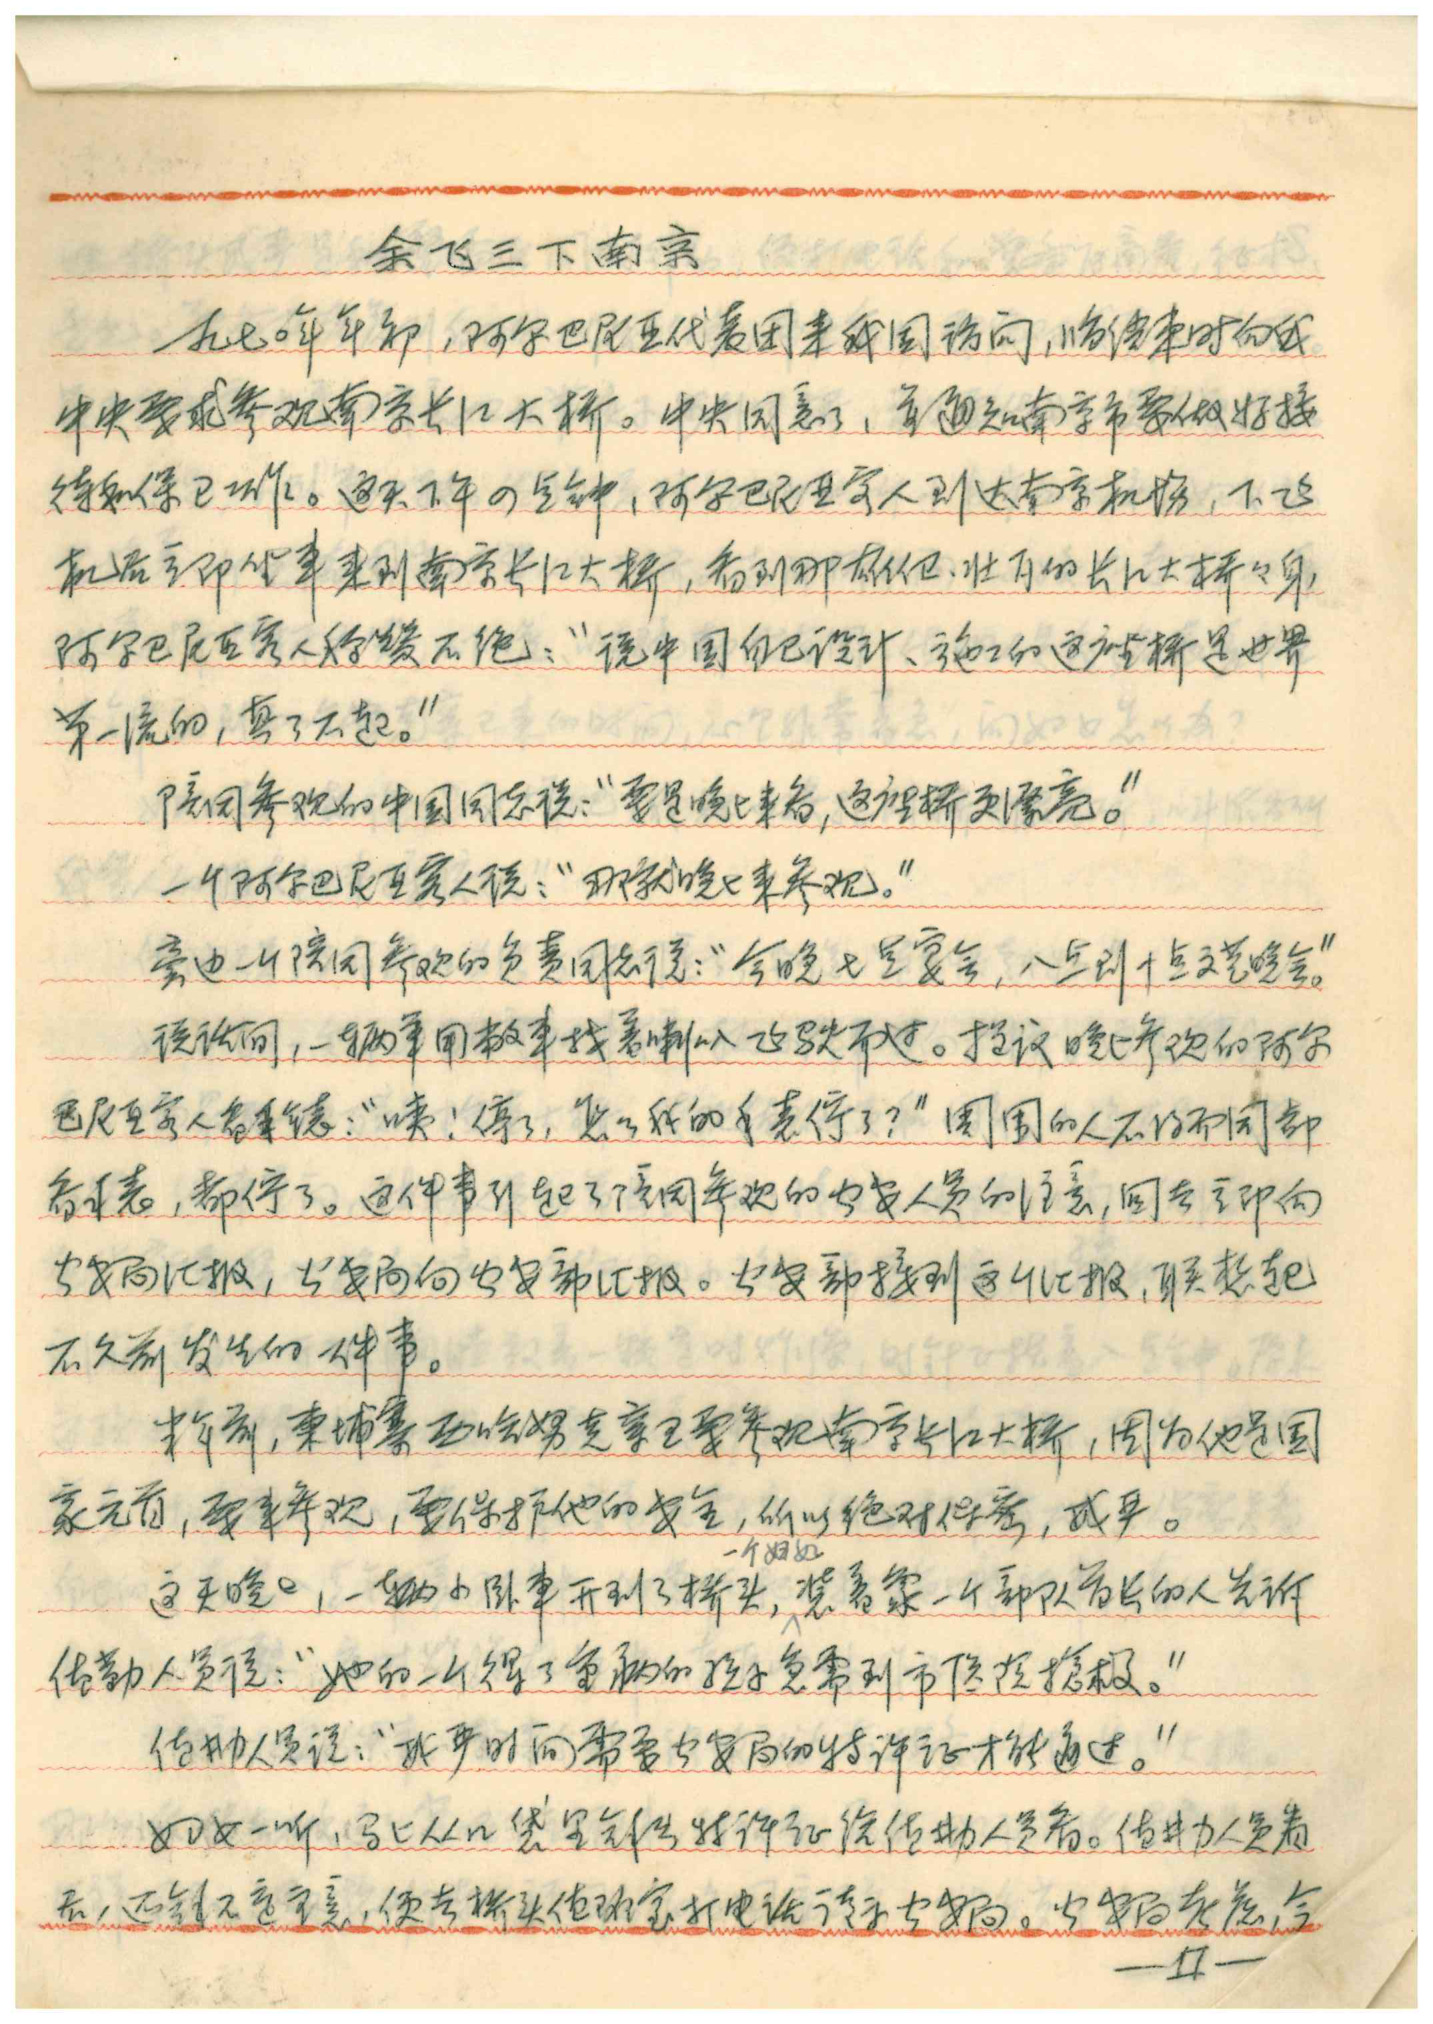 余飞三下南京
一九七〇年年初，阿尔巴尼亚代表团来我国访问，临结束时向我
中央要求参观南京长江大桥。中央同意了，并通知南京市要做好接
待和保卫工作。这天下午四点钟，阿尔巴尼亚客人到达南京机场，下飞
机后立即坐车来到南京长江大桥，看到那雄伟、壮丽的长江大桥々身，
阿尔巴尼亚客人称赞不绝：“说中国自己设计、施工的这座桥是世界
第一流的，真了不起。”
陪同参观的中国同志说：“要是晚上来看，这座桥更漂亮。”
一个阿尔巴尼亚客人说：“那就晚上来参观。”
旁边一个陪同参观的负责同志说：“今晚七点宴会，八点到十点文艺晚会。”
说话间，一辆军用救车按着喇叭飞驶而过。提议晚上参观的阿尔
巴尼亚客人看手表：“咦！停了，怎么我的手表停了？”周围的人不约而同都
看手表，都停了。这件事引起了陪同参观的公安人员的注意，回去立即向
公安局汇报，公安局向公安部汇报。公安部接到这个汇报，联想起
不久前发生的一件事。
半年前，柬埔寨西哈努克亲王要参观南京长江大桥，因为他是国
家元首，要来参观，要保护他的安全，所以绝对保密，戒严。
这天晚上，一辆小卧车开到了桥头，一个妇女装着象一个部队首长的人告诉
值勤人员说：“她的一个得了重病的孩子急需到市医院抢救。”
值勤人员说：“戒严时间需要公安局的特许证才能通过。”
妇女一听，马上从口袋里拿出特许证给值勤人员看。值勤人员看
后，还拿不定主意，便去桥头值班室打电话请示公安局。公安局答应，今
—17—